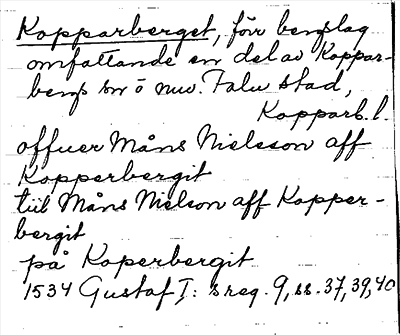 Kopparberget, förr bergslag
omfattande en del av Koppar-
bergs sn o nuv. Falu stad,
Kopparb. l.
offuer Måns Nielsson aff
Kopperbergit
till Måns Nielson aff Kopper-
bergit
på Koperbergit
1534 Gustaf I: s reg. 9, ss. 37, 39, 40